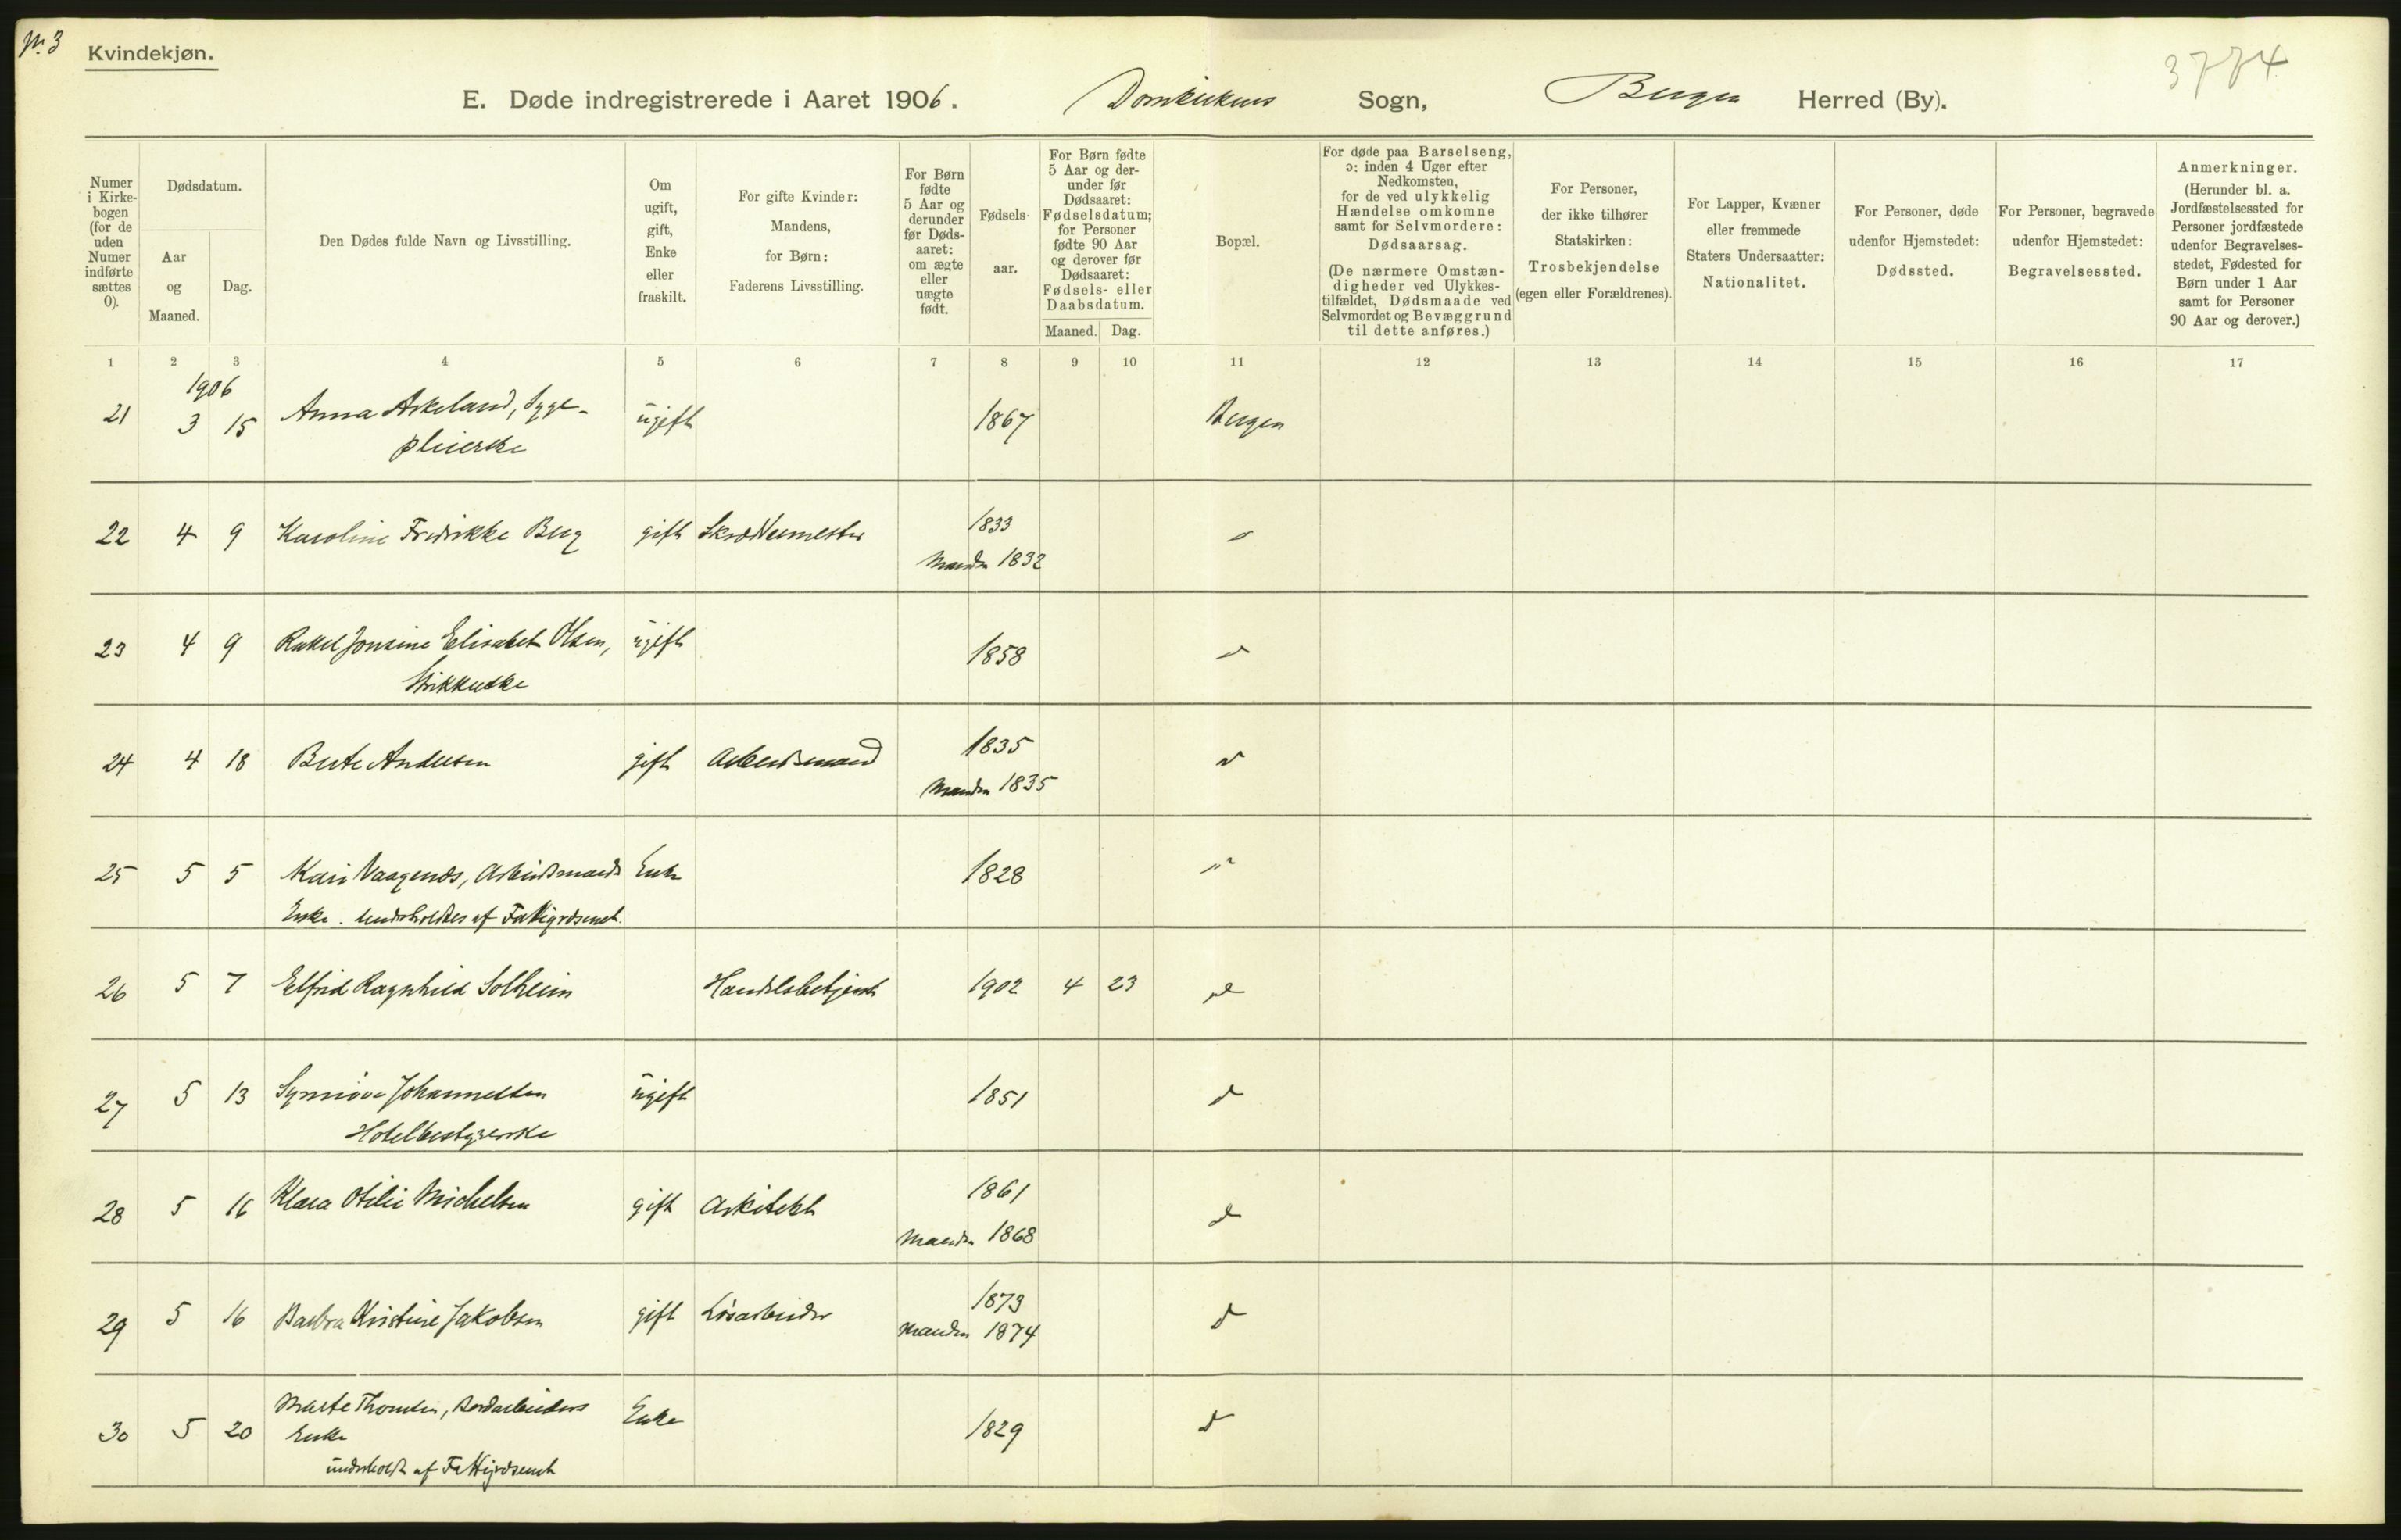 N. 3
Kvindekjøn.
3774
E. Døde indregistrerede i Aaret 1906. Domkirkens Sogn, Bergen Herred (By).
Numer i Kirke-bogen (for de uden Numer indførte sættes 0).
Dødsdatum.
Aar og Maaned.
Dag.
Den Dødes fulde Navn og Livsstilling.
Om ugift, gift, Enke eller fraskilt.
For gifte Kvinder: Mandens, for Børn: Faderens Livsstilling.
For Børn fødte 5 Aar og derunder før Døds-aaret: om ægte eller uægte født.
Fødsels-aar.
For Børn fødte 5 Aar og der-under før Dødsaaret: Fødselsdatum; for Personer fødte 90 Aar og derover før Dødsaaret: Fødsels- eller Daabsdatum.
Maaned. Dag.
Bopæl.
For døde paa Barselseng, ɔ: inden 4 Uger efter Nedkomsten, for de ved ulykkelig Hændelse omkomne samt for Selvmordere: Dødsaarsag. (De nærmere Omstæn-digheder ved Ulykkes-tilfældet, Dødsmaade ved Selvmordet og Bevæggrund til dette anføres.)
For Personer, der ikke tilhører Statskirken: Trosbekjendelse (egen eller Forældrenes).
For Lapper, Kvæner eller fremmede Staters Undersaatter: Nationalitet.
For Personer, døde udenfor Hjemstedet: Dødssted.
For Personer, begravede udenfor Hjemstedet: Begravelsessted.
Anmerkninger. (Herunder bl. a. Jordfæstelsessted for Personer jordfæstede udenfor Begravelses-stedet, Fødested for Børn under 1 Aar samt for Personer 90 Aar og derover.)
1 2 3 4 5 6 7 8 9 10 11 12 13 14 15 16 17
1906
21 3 15 Anna Askeland, Syge- ugift 1867 Bergen
pleierske
22 4 9 Karoline Fredrikke Berg gift Skræddermester 1833
Manden 1832
23 4 9 Rakel Jonsine Elisabet Olsen, ugift 1858
Strikkerske
24 4 18 Berte Andersen gift Arbeidsmand 1835
Manden 1835
25 5 5 Kari Vaagenæs, Arbeidsmands Enke 1828 "
Enke. Understøttes af Fattigvæsenet.
26 5 7 Elfrid Ragnhild Solheim Handelsbetjent 1902 4 23
27 5 13 Synnøve Johannessen ugift 1851
Hotelbestyrerske
28 5 16 Klara Otilie Michelsen gift Arkitekt 1861
Manden 1868
29 5 16 Barbra Kristine Jakobsen gift Løsarbeider 1873
Manden 1874
30 5 20 Marte Thomsen, Enke 1829
Enke
understøtt. af Fattigvæsenet